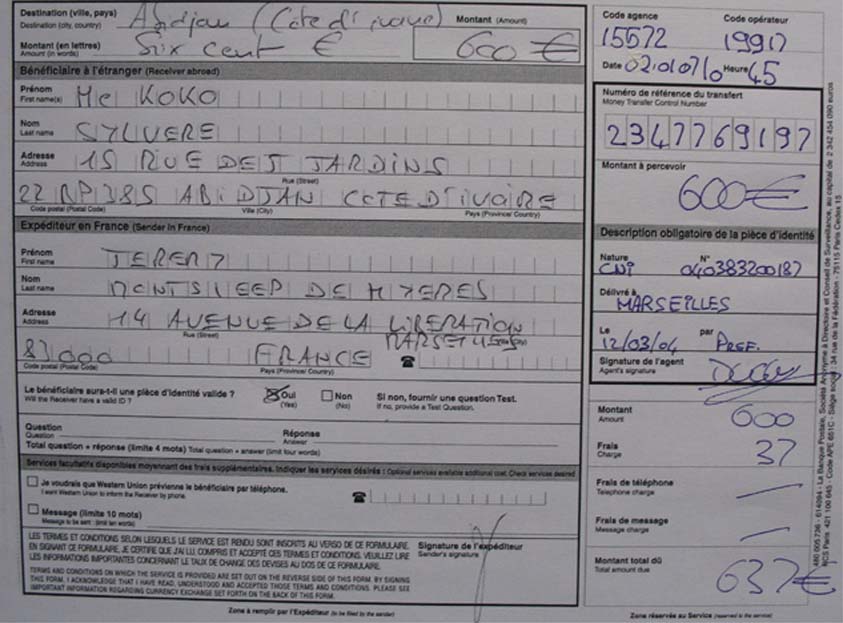 Destination (ville, pays)
Destination (city, country)
Abidjan (Cote d'ivoire)
Montant (Amount)
Montant (en lettres)
Amount (in words)
Six cent €
600 €
Bénéficiaire à l'étranger (Receiver abroad)
Prénom
First name(s)
Me KOKO
Nom
Last name
SYLVERE
Adresse
Address
15 RUE DES JARDINS
Rue (Street)
22 BP 385 ABIDJAN COTE D'IVOIRE
Code postal (Postal Code) Ville (City) Pays (Province/ Country)
Expéditeur en France (Sender in France)
Prénom
First name
JEREMY
Nom
Last name
DE HYERES
Adresse
Address
14 AVENUE DE LA LIBERATION
Rue (Street)
83000 FRANCE
Code postal (Postal Code) Pays (Province/ Country)
Le bénéficiaire aura-t-il une pièce d'identité valide ? Oui Non Si non, fournir une question Test.
Will the Receiver have a valid ID ? (Yes) (No) If no, provide a Test Question.
Question Réponse
Question Answer
Total question + réponse (limite 4 mots) Total question + answer (limit four words)
Services facultatifs disponibles moyennant des frais supplémentaires. Indiquer les services désirés : Optional services available additional cost. Check services desired
Je voudrais que Western Union prévienne le bénéficiaire par téléphone.
I want Western Union to inform the Receiver by phone.
Message (limite 10 mots)
Message to be sent : (limit ten words)
LES TERMES ET CONDITIONS SELON LESQUELS LE SERVICE EST RENDU SONT INSCRITS AU VERSO DE CE FORMULAIRE.
EN SIGNANT CE FORMULAIRE, JE CERTIFIE QUE J'AI LU, COMPRIS ET ACCEPTÉ CES TERMES ET CONDITIONS. VEUILLEZ LIRE
LES INFORMATIONS IMPORTANTES CONCERNANT LE TAUX DE CHANGE DES DEVISES AU DOS DE CE FORMULAIRE.
TERMS AND CONDITIONS ON WHICH THE SERVICE IS PROVIDED ARE SET OUT ON THE REVERSE SIDE OF THIS FORM. BY SIGNING
THIS FORM, I ACKNOWLEDGE THAT I HAVE READ, UNDERSTOOD AND ACCEPTED THOSE TERMS AND CONDITIONS. PLEASE SEE
IMPORTANT INFORMATION REGARDING CURRENCY EXCHANGE SET FORTH ON THE BACK OF THIS FORM.
Signature de l'expéditeur
Sender's signature
Zone à remplir par l'Expéditeur (to be filed by the sender)
Code agence Code opérateur
15572 19917
Date Heure 45
Numéro de référence du transfert
Money Transfer Control Number
2347769197
Montant à percevoir
600 €
Description obligatoire de la pièce d'identité
Nature N°
CNI 040383200187
Délivré à
MARSEILLES
Le par
12/03/04 PREF.
Signature de l'agent
Agent's signature
Montant
Amount
600
Frais
Charge
37
Frais de téléphone
Telephone charge
Frais de message
Message charge
Montant total dû
Total amount due
637 €
Zone réservée au Service (reserved to the service)